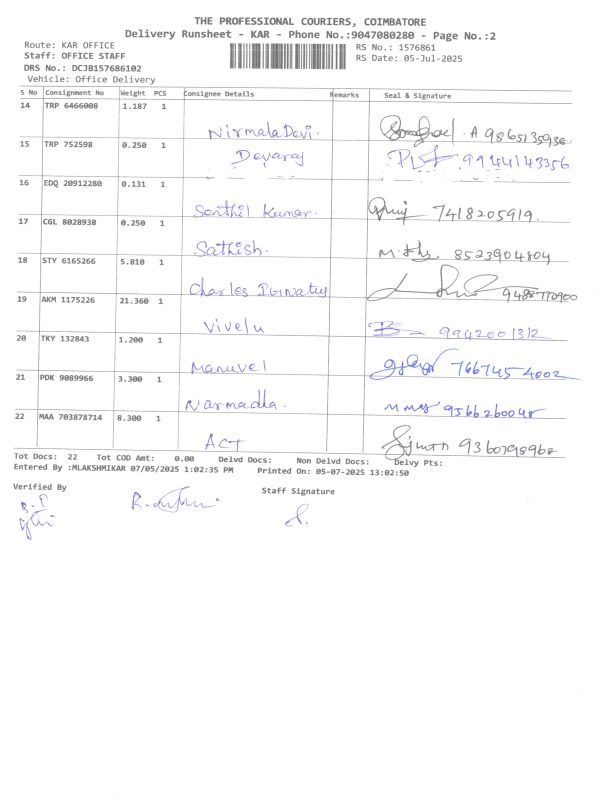 THE PROFESSIONAL COURIERS, COIMBATORE
Delivery Runsheet - KAR - Phone No.:9047080280 - Page No.:2
Route: KAR OFFICE
Staff: OFFICE STAFF
DRS No.: DCJB157686102
Vehicle: Office Delivery
RS No.: 1576861
RS Date: 05-Jul-2025
S No Consignment No Weight PCS Consignee Details Remarks Seal & Signature
14 TRP 6466008 1.187 1
NirmalaDevi. A 9865135938
15 TRP 752598 0.250 1
Devaraj 9944143356
16 EDQ 20912280 0.131 1
Senthil Kumar. 7418205919.
17 CGL 8028938 0.250 1
Sathish. 8523904804
18 STY 6165266 5.810 1
Charles
19 AKM 1175226 21.360 1
Vivelu 9942001312
20 TKY 132843 1.200 1
Manuvel 7667454002
21 PDK 9089966 3.300 1
Narmadha. 9566260048
22 MAA 703878714 8.300 1
ACT 9360798968
Tot Docs: 22 Tot COD Amt: 0.00 Delvd Docs: Non Delvd Docs: Delvy Pts:
Entered By :MLAKSHMIKAR 07/05/2025 1:02:35 PM Printed On: 05-07-2025 13:02:50
Verified By
Staff Signature